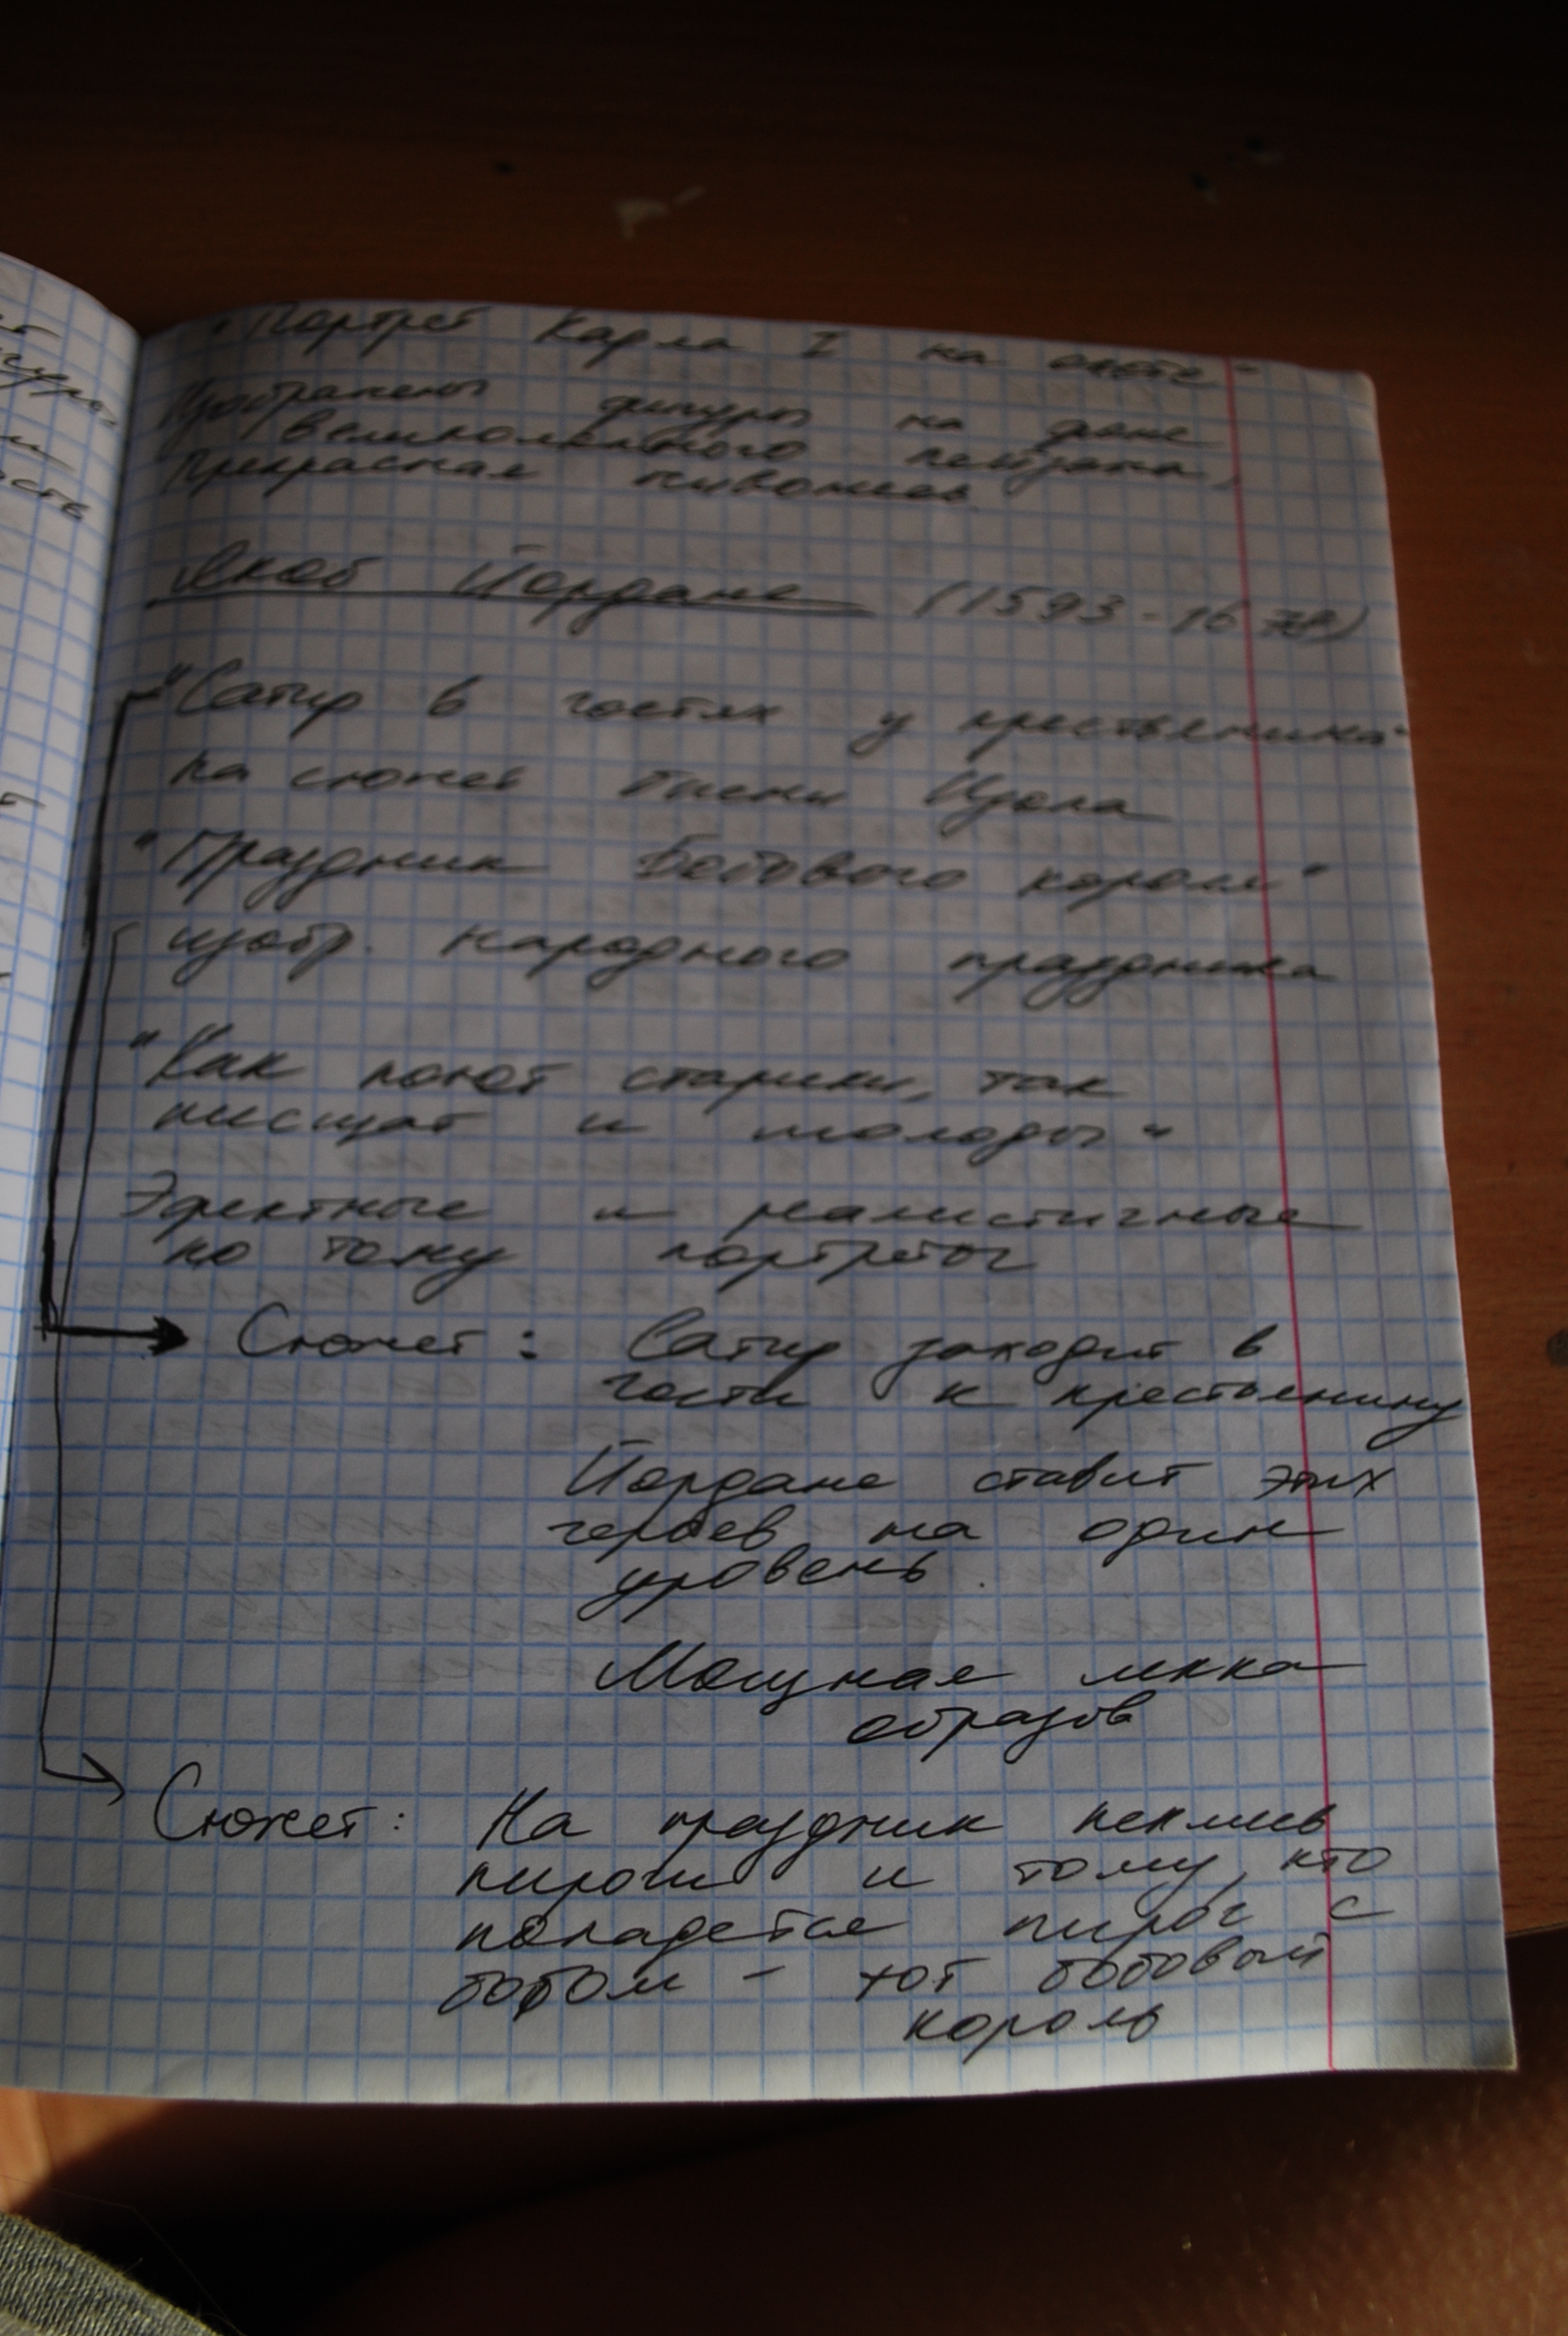 "Портрет Карла I на охоте"
Изображены фигуры на фоне
великолепного пейзажа,
Прекрасная живопись
Якоб Йорданс (1593-1678)
"Сатир в гостях у крестьянина"
на сюжет басни Эзопа
"Праздник Бобового короля"
изобр. народного праздника
"Как поют старики, так
писщат и молоды"
Эфектные и реалистичные
по тому портреты
Сюжет: Сатир заходит в
гости к крестьянину
Йорданс ставит этих
героев на один
уровень.
Мощная лепка
образов
Сюжет: На праздник пеклись
пироги и тому, кто
попадется пирог с
бобом - тот бобовый
король